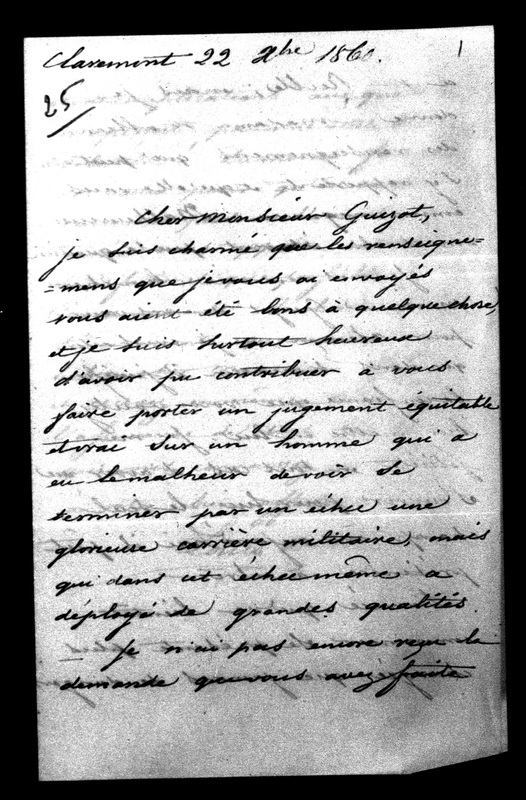 Claremont 22 Xbre 1860.
1
25
Cher Monsieur Guizot,
je suis charmé que les renseigne=
=mens que je vous ai envoyés
vous aient été bons à quelque chose,
et je suis surtout heureux
d'avoir pu contribuer à vous
faire porter un jugement équitable
et vrai sur un homme qui a
eu le malheur de voir se
terminer par un échec une
glorieuse carrière militaire, mais
qui dans cet échec même a
déployé de grandes qualités.
Je n'ai pas encore reçu la
demande que vous avez faite